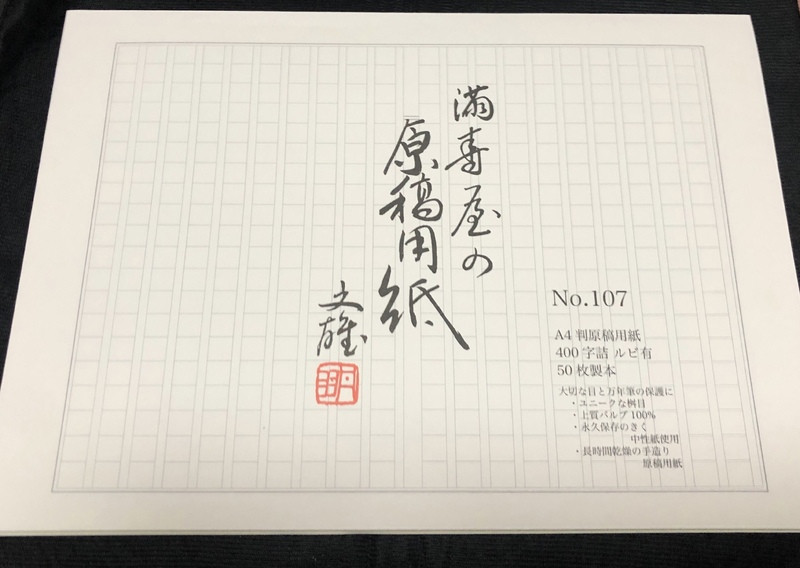 満寿屋の
原稿用紙
文雄
No.107
A4判原稿用紙
400字詰 ルビ有
50枚製本
大切な目と万年筆の保護に
・ユニークな桝目
・上質パルプ100%
・永久保存のきく
中性紙使用
・長時間乾燥の手造り
原稿用紙